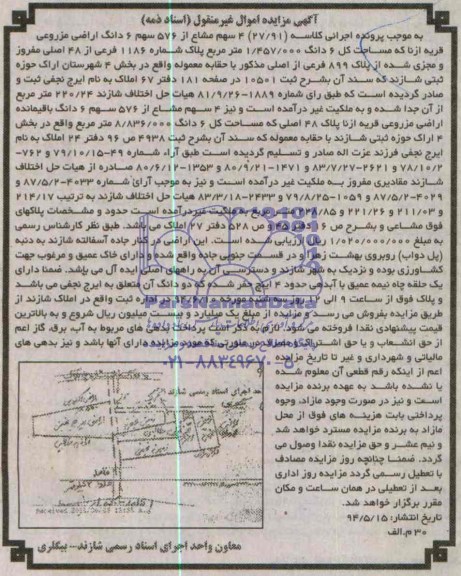 آگهی مزایده اموال غیرمنقول (اسناد ذمه)
به موجب پرونده اجرائی کلاسه (۲۷/۹۱) ۴ سهم مشاع از ۵۷۶ سهم ۶ دانگ اراضی مزروعی
قریه ازنا که مساحت کل ۶ دانگ ۱/۴۵۷/۰۰۰ متر مربع پلاک شماره ۱۱۸۶ فرعی از ۴۸ اصلی مفروز
و مجزی شده از پلاک ۸۹۹ فرعی از اصلی مذکور با حقابه معموله واقع در بخش ۴ شهرستان اراک حوزه
ثبتی شازند که سند آن بشرح ثبت ۱۰۵۰۱ در صفحه ۱۸۱ دفتر ۶۷ املاک به نام ایرج نجفی ثبت و
صادر گردیده است که طبق رای شماره ۱۸۸۹-۸۱/۹/۲۶ هیات حل اختلاف شازند ۲۲۰/۲۴ متر مربع
از آن جدا شده و به ملکیت غیر درآمده است و نیز ۴ سهم مشاع از ۵۷۶ سهم ۶ دانگ باقیمانده
اراضی مزروعی قریه ازنا پلاک ۴۸ اصلی که مساحت کل ۶ دانگ ۸/۸۳۶/۰۰۰ متر مربع واقع در بخش
۴ اراک حوزه ثبتی شازند با حقابه معموله که سند آن بشرح ثبت ۴۹۳۸ ص ۹۶ دفتر ۲۴ املاک به نام
ایرج نجفی فرزند عزت اله صادر و تسلیم گردیده است طبق آراء شماره ۴۹-۷۹/۱۰/۱۵ و ۷۶۲-
۷۸/۱۰/۲ و ۲۶۲۱-۸۳/۷/۲۷ و ۱۴۷۱-۸۰/۹/۲۱ و ۱۳۵۳-۸۰/۶/۲ صادره از هیات حل اختلاف
شازند مقادیری مفروز به ملکیت غیر درآمده است و نیز به موجب آرائ شماره ۴۰۳۳-۸۷/۵/۲ و
۴۰۲۹-۸۷/۵/۲ و ۱۰۵۹-۷۹/۸/۲۵ و ۲۴۳۳-۸۳/۳/۱۸ هیات حل اختلاف شازند به ترتیب ۲۱۴/۱۷
و ۲۱۱/۰۳ و ۲۲۱/۲۶ و مربع به ملکیت غیر درآمده است حدود و مشخصات پلاکهای
فوق مشاعی و بشرح ص ۵۲۸ دفتر ۲۷ املاک می باشد. طبق نظر کارشناس رسمی
به مبلغ ۱/۰۲۰/۰۰۰/۰۰۰ ریال ارزیابی شده است. این اراضی در کنار جاده آسفالته شازند به
(پل دواب) روبروی بهشت زهرا و در قسمت جنوبی جاده واقع شده دارای خاک عمیق و مرغوب جهت
کشاورزی بوده و نزدیک به شهر شازند و دسترسی آن به راههای اصلی ایده آل می باشد. ضمنا دارای
یک حلقه چاه نیمه عمیق با آبدهی حدود ۴ اینچ حفر شده که دو دانگ آن متعلق به ایرج نجفی می باشد
و پلاک فوق از ساعت ۹ الی ۱۲ روز سه شنبه اداره ثبت واقع در املاک شازند از
طریق مزایده بفروش می رسد و مزایده از مبلغ یک میلیارد و بیست میلیون ریال شروع و به بالاترین
قیمت پیشنهادی نقدا فروخته می شود. لازم به ذکر است پرداخت بدهی های مربوط به آب، برق، گاز اعم
از حق انشعاب و یا حق اشتراک و مصرف در صورتی که مورد مزایده دارای آنها باشد و نیز بدهی های
مالیاتی و شهرداری و غیر تا تاریخ مزایده
اعم از اینکه رقم قطعی آن معلوم شده
یا نشده باشد به عهده برنده مزایده
است و نیز در صورت وجود مازاد، وجوه
پرداختی بابت هزینه های فوق از محل
مازاد به برنده مزایده مسترد خواهد شد
و نیم عشر و حق مزایده نقدا وصول می
گردد. ضمنا چنانچه روز مزایده مصادف
با تعطیل رسمی گردد مزایده روز اداری
بعد از تعطیلی در همان ساعت و مکان
مقرر برگزار خواهد شد.
تاریخ انتشار: ۹۴/۵/۱۵
۳۰ م.الف
معاون واحد اجرای اسناد رسمی شازند- بیگلری
۰۲۱-۸۸۳۴۹۶۷۰-۵